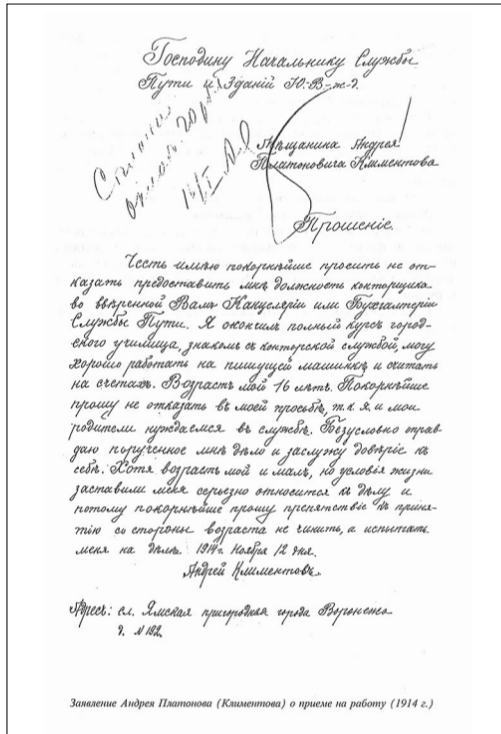 Господину Начальнику Службы
Пути и Зданій Ю-В-ж-д.
Мѣщанина Андрея
Платоновича Климентова
Прошеніе.
Честь имѣю покорнѣйше просить не от-
казать предоставить мнѣ должность конторщика
во ввѣренной Вамъ Канцеляріи или Бухгалтеріи
Службы Пути. Я окончилъ полный курсъ город-
ского училища, знакомъ съ конторской службой, могу
хорошо работать на пишущей машинкѣ и считать
на счетахъ. Возрастъ мой 16 лѣтъ. Покорнѣйше
прошу не отказать въ моей просьбѣ, т.к. я и мои
родители нуждаемся въ службѣ. Безусловно оправ-
даю порученное мнѣ дѣло и заслужу довѣріе къ
себѣ. Хотя возрастъ мой и малъ, но условія жизни
заставили меня серьезно относится къ дѣлу и
потому покорнѣйше прошу препятствіе къ приня-
тію со стороны возраста не чинить, а испытать
меня на дѣлѣ. 1914 г. Ноября 12 дня.
Андрей Климентовъ.
Адресъ: сл. Ямская пригородная города Воронежа
д. № 192.
Заявление Андрея Платонова (Климентова) о приеме на работу (1914 г.)